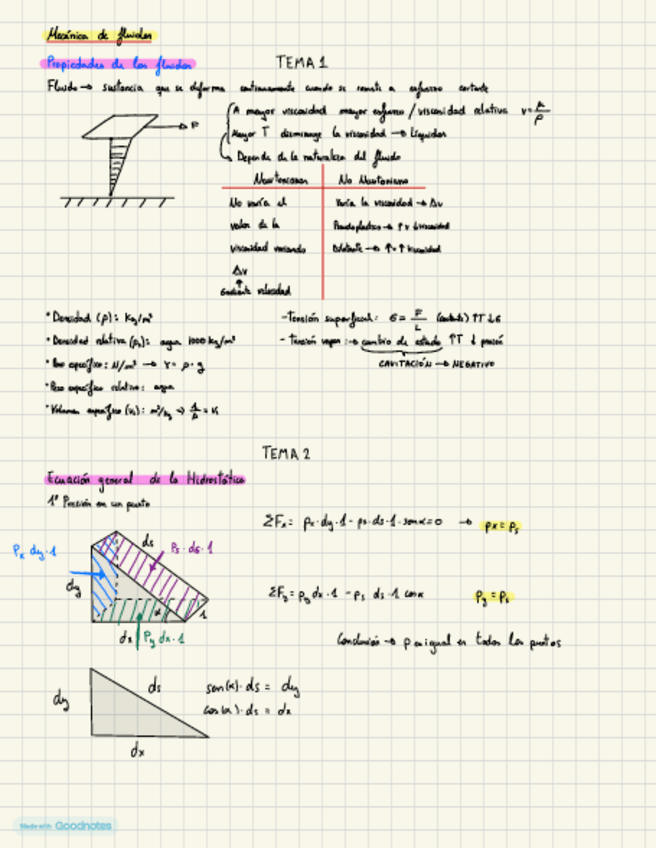 Mecánica de fluidos
Propiedades de los fluidos
TEMA 1
Fluido → sustancia que se deforma continuamente cuando se somete a esfuerzo cortante
F
A mayor viscosidad mayor esfuerzo / viscosidad relativa ν = μ/ρ
Mayor T disminuye la viscosidad → Líquidos
Depende de la naturaleza del fluido
Newtoniano
No Newtoniano
No varía el
valor de la
viscosidad variando
Δv
Gradiente velocidad
Varía la viscosidad → Δv
Pseudoplástico → ↑v ↓viscosidad
Dilatante → ↑v ↑viscosidad
• Densidad (ρ): kg/m³
• Densidad relativa (ρr): agua 1000 kg/m³
• Peso específico: N/m³ → γ = ρ · g
• Peso específico relativo: agua
• Volumen específico (vs): m³/kg → 1/ρ = vs
- Tensión superficial: σ = F/L (contacto) ↑T ↓σ
- Tensión vapor: → cambio de estado ↑T ↓ presión
CAVITACIÓN → NEGATIVO
TEMA 2
Ecuación general de la Hidrostática
1º Presión en un punto
Px dy · 1
ds
Ps · ds · 1
dy
α
1
dx
Py dx · 1
ΣFx = px · dy · 1 - ps · ds · 1 · senα = 0 → px = ps
ΣFy = py dx · 1 - ps ds · 1 cosα
Py = Ps
Conclusión → p es igual en todos los puntos
dy
ds
dx
sen(α) · ds = dy
cos(α) · ds = dx
Made with Goodnotes